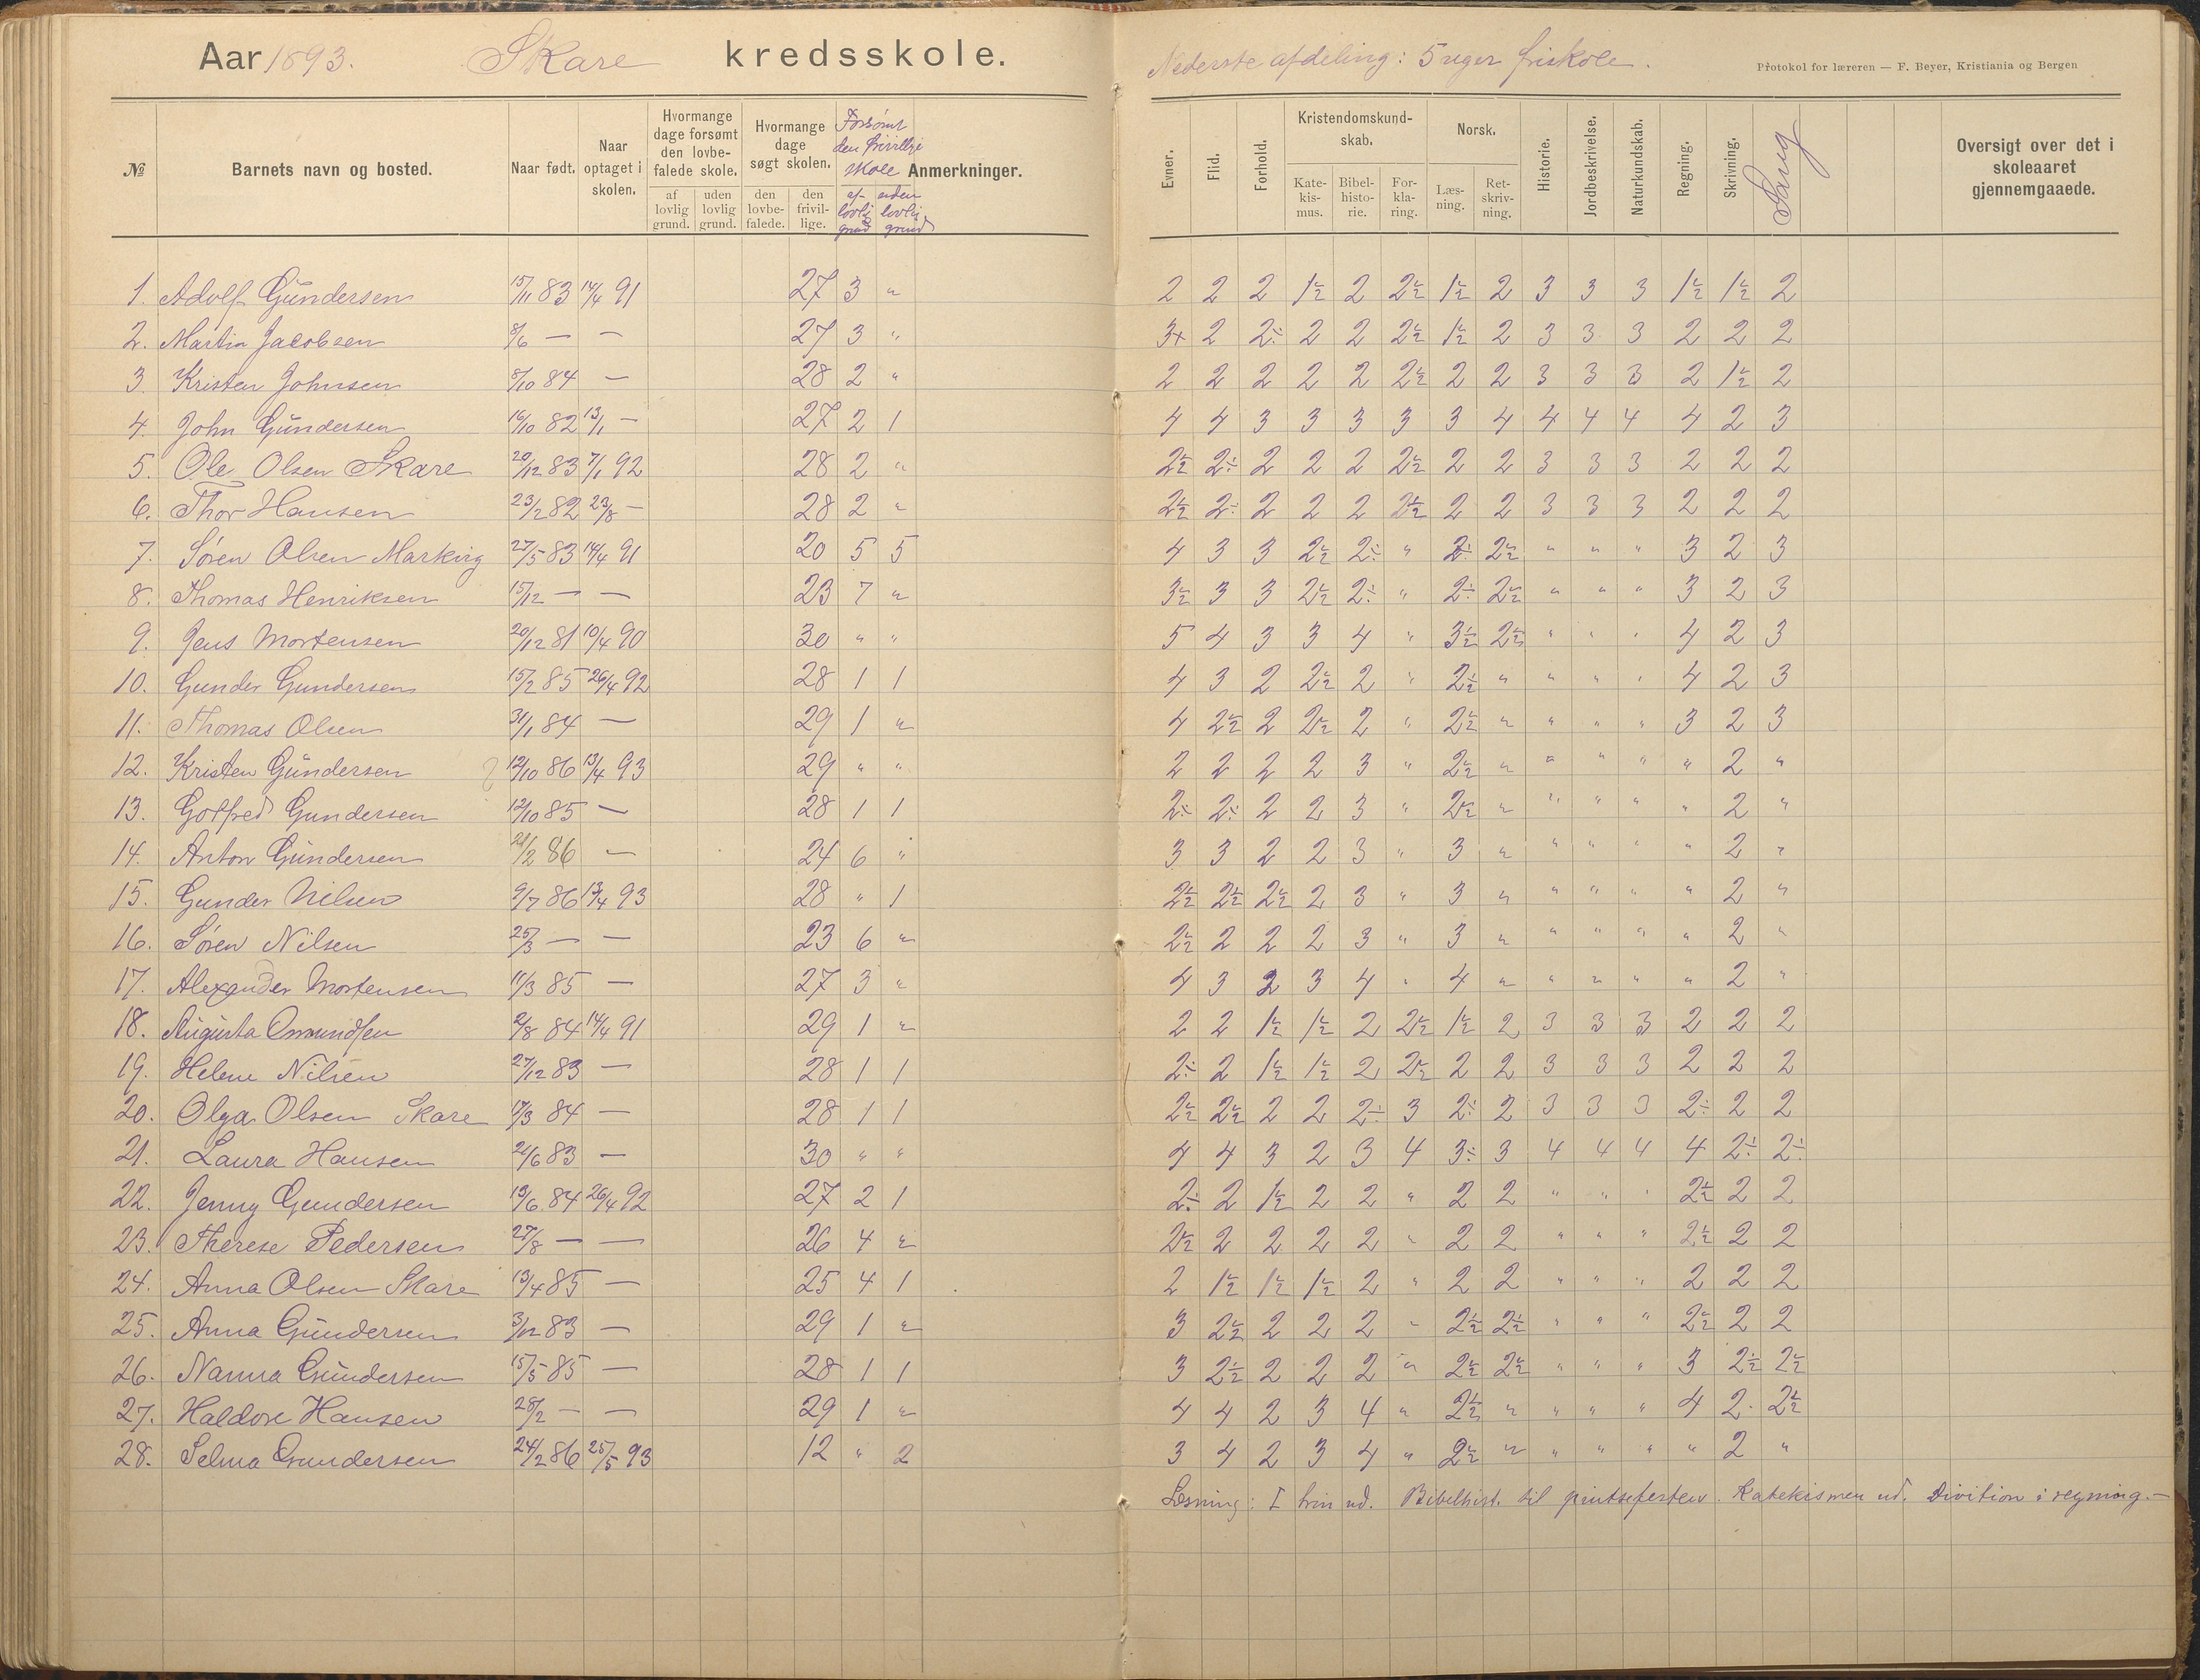 Aar 1893. Skare kredsskole.
Nederste afdeling: 5 uger friskole.
Protokol for læreren — F. Beyer, Kristiania og Bergen
№ Barnets navn og bosted. Naar født. Naar optaget i skolen. Hvormange dage forsømt den lovbefalede skole. af lovlig grund. uden lovlig grund. Hvormange dage søgt skolen. den lovbefalede. den frivillige. Forsømt den frivillige skole af lovlig grund uden lovlig grund Anmerkninger.
Evner. Flid. Forhold. Kristendomskundskab. Katekismus. Bibelhistorie. Forklaring. Norsk. Læsning. Retskrivning. Historie. Jordbeskrivelse. Naturkundskab. Regning. Skrivning. Sang Oversigt over det i skoleaaret gjennemgaaede.
1. Adolf Gundersen 15/11 83 14/4 91 27 3 " 2 2 2 1½ 2 2½ 1½ 2 3 3 3 1½ 1½ 2
2. Martin Jacobsen 8/6 — — 27 3 " 3+ 2 2÷ 2 2 2½ 1½ 2 3 3 3 2 2 2
3. Kristen Johnsen 8/10 84 — 28 2 " 2 2 2 2 2 2½ 2 2 3 3 3 2 1½ 2
4. John Gundersen 16/10 82 13/1 — 27 2 1 4 4 3 3 3 3 3 4 4 4 4 4 2 3
5. Ole Olsen Skare 20/12 83 7/1 92 28 2 " 2½ 2÷ 2 2 2 2½ 2 2 3 3 3 2 2 2
6. Thor Hansen 23/2 82 23/8 — 28 2 " 2½ 2÷ 2 2 2 2½ 2 2 3 3 3 2 2 2
7. Søren Olsen Markvig 27/5 83 14/4 91 20 5 5 4 3 3 2½ 2÷ " 2÷ 2½ " " " 3 2 3
8. Thomas Henriksen 15/12 — — 23 7 " 3½ 3 3 2½ 2÷ " 2÷ 2½ " " " 3 2 3
9. Jens Mortensen 20/12 81 10/4 90 30 " " 5 4 3 3 4 " 3½ 2½ " " " 4 2 3
10. Gunder Gundersen 15/2 85 26/4 92 28 1 1 4 3 2 2½ 2 " 2½ " " " " 4 2 3
11. Thomas Olsen 31/1 84 — 29 1 " 4 2½ 2 2½ 2 " 2½ " " " " 3 2 3
12. Kristen Gundersen 12/10 86 13/4 93 29 " " 2 2 2 2 3 " 2½ " " " " " 2 "
13. Gotfred Gundersen 12/10 85 — 28 1 1 2÷ 2÷ 2 2 3 " 2½ " " " " " 2 "
14. Anton Gundersen 21/2 86 — 24 6 " 3 3 2 2 3 " 3 " " " " " 2 "
15. Gunder Nilsen 9/7 86 13/4 93 28 " 1 2½ 2½ 2½ 2 3 " 3 " " " " " 2 "
16. Søren Nilsen 25/3 — — 23 6 " 2½ 2 2 2 3 " 3 " " " " " 2 "
17. Alexander Mortensen 11/3 85 — 27 3 " 4 3 2 3 4 " 4 " " " " " 2 "
18. Augusta Osmundsen 2/8 84 14/4 91 29 1 " 2 2 1½ 1½ 2 2½ 1½ 2 3 3 3 2 2 2
19. Helene Nilsen 27/12 83 — 28 1 1 2÷ 2 1½ 1½ 2 2½ 2 2 3 3 3 2 2 2
20. Olga Olsen Skare 17/3 84 — 28 1 1 2½ 2½ 2 2 2÷ 3 2÷ 2 3 3 3 2÷ 2 2
21. Laura Hansen 21/6 83 — 30 " " 4 4 3 2 3 4 3÷ 3 4 4 4 4 2÷ 2÷
22. Jenny Gundersen 19/6 84 26/4 92 27 2 1 2÷ 2 1½ 2 2 " 2 2 " " " 2½ 2 2
23. Therese Pedersen 27/8 — — 26 4 " 2½ 2 2 2 2 " 2 2 " " " 2½ 2 2
24. Anna Olsen Skare 13/4 85 — 25 4 1 2 1½ 1½ 1½ 2 " 2 2 " " " 2 2 2
25. Anna Gundersen 3/12 83 — 29 1 " 3 2½ 2 2 2 " 2½ 2½ " " " 2½ 2 2
26. Nanna Gundersen 15/5 85 — 28 1 1 3 2½ 2 2 2 " 2½ 2½ " " " 3 2½ 2½
27. Haldore Hansen 28/2 — — 29 1 " 4 4 2 3 4 " 2½ " " " " 4 2 2½
28. Selma Gundersen 24/2 86 25/5 93 12 " 2 3 4 2 3 4 " 2½ " " " " " 2 "
Læsning: I trin ud. Bibelhist. til pintsefesten. Katekismen ud. Division i regning.—